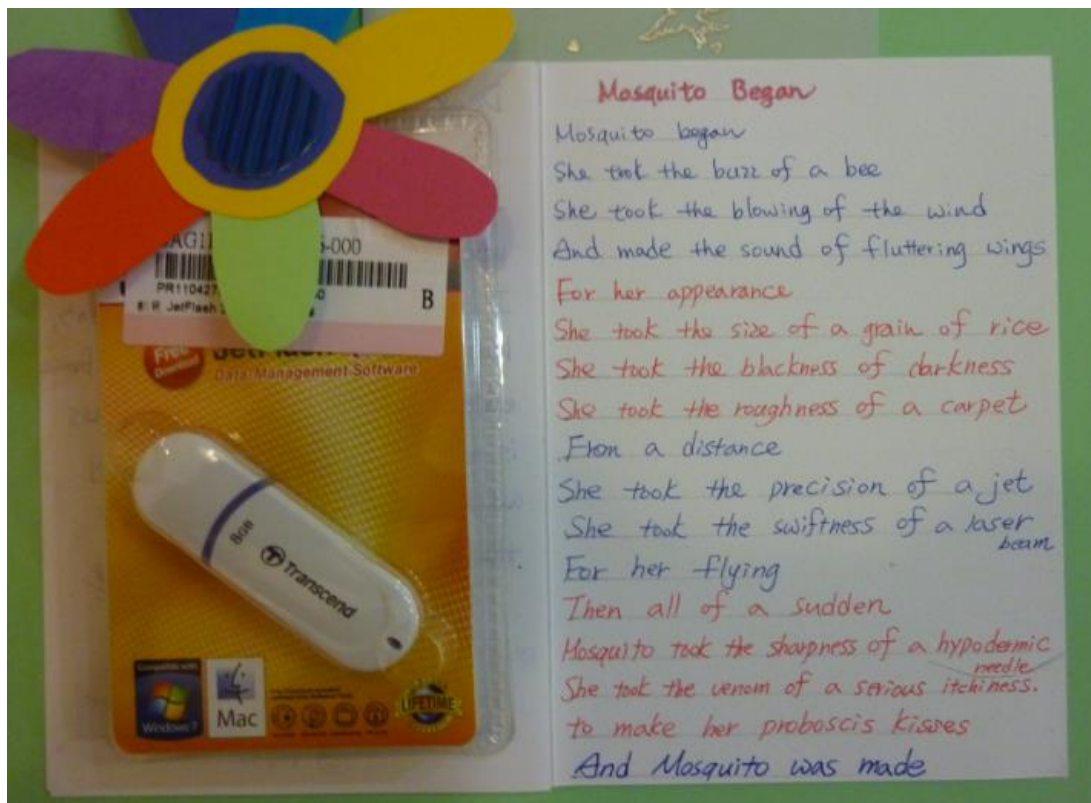 -000
PR110427
JetFlash
B
Free
Download
JetFlash
Data-Management Software
8GB
Transcend
Compatible with
Windows 7
Mac
LIFETIME
Mosquito Began
Mosquito began
She took the buzz of a bee
She took the blowing of the wind
And made the sound of fluttering wings
For her appearance
She took the size of a grain of rice
She took the blackness of darkness
She took the roughness of a carpet
From a distance
She took the precision of a jet
She took the swiftness of a laser
beam
For her flying
Then all of a sudden
Mosquito took the sharpness of a hypodermic
needle
She took the venom of a serious itchiness.
to make her proboscis kisses
And Mosquito was made